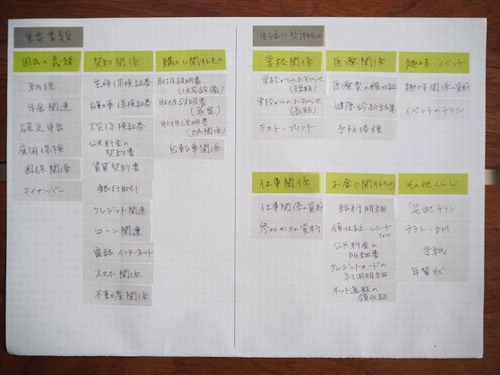 重要書類
国の書類
契約関係
購入に関するもの
年金関連
確定申告
雇用保険
国保関係
マイナンバー
生命保険証券
自動車保険証券
火災保険証券
公共料金の
契約書
賃貸契約書
銀行取引
クレジット関連
ローン関連
電話・インターネット
スマホ関係
不動産関係
取扱説明書
(住宅設備)
取扱説明書
(家電)
取扱説明書
(OA関係)
自転車関係
生活に関するもの
学校関係
医療関係
趣味・イベント
学校からのお知らせ
(短期)
学校からのお知らせ
(長期)
テスト・プリント
医療費の領収証
健康診断結果
予防接種
趣味関係の資料
イベントのチラシ
仕事関係
お金に関するもの
その他くらし
仕事関係の資料
給料明細
領収証・レシート
など
公共料金の
明細書
クレジットカードの
ネット通販の
領収証
宅配チラシ
チラシ・DM
手紙
年賀状